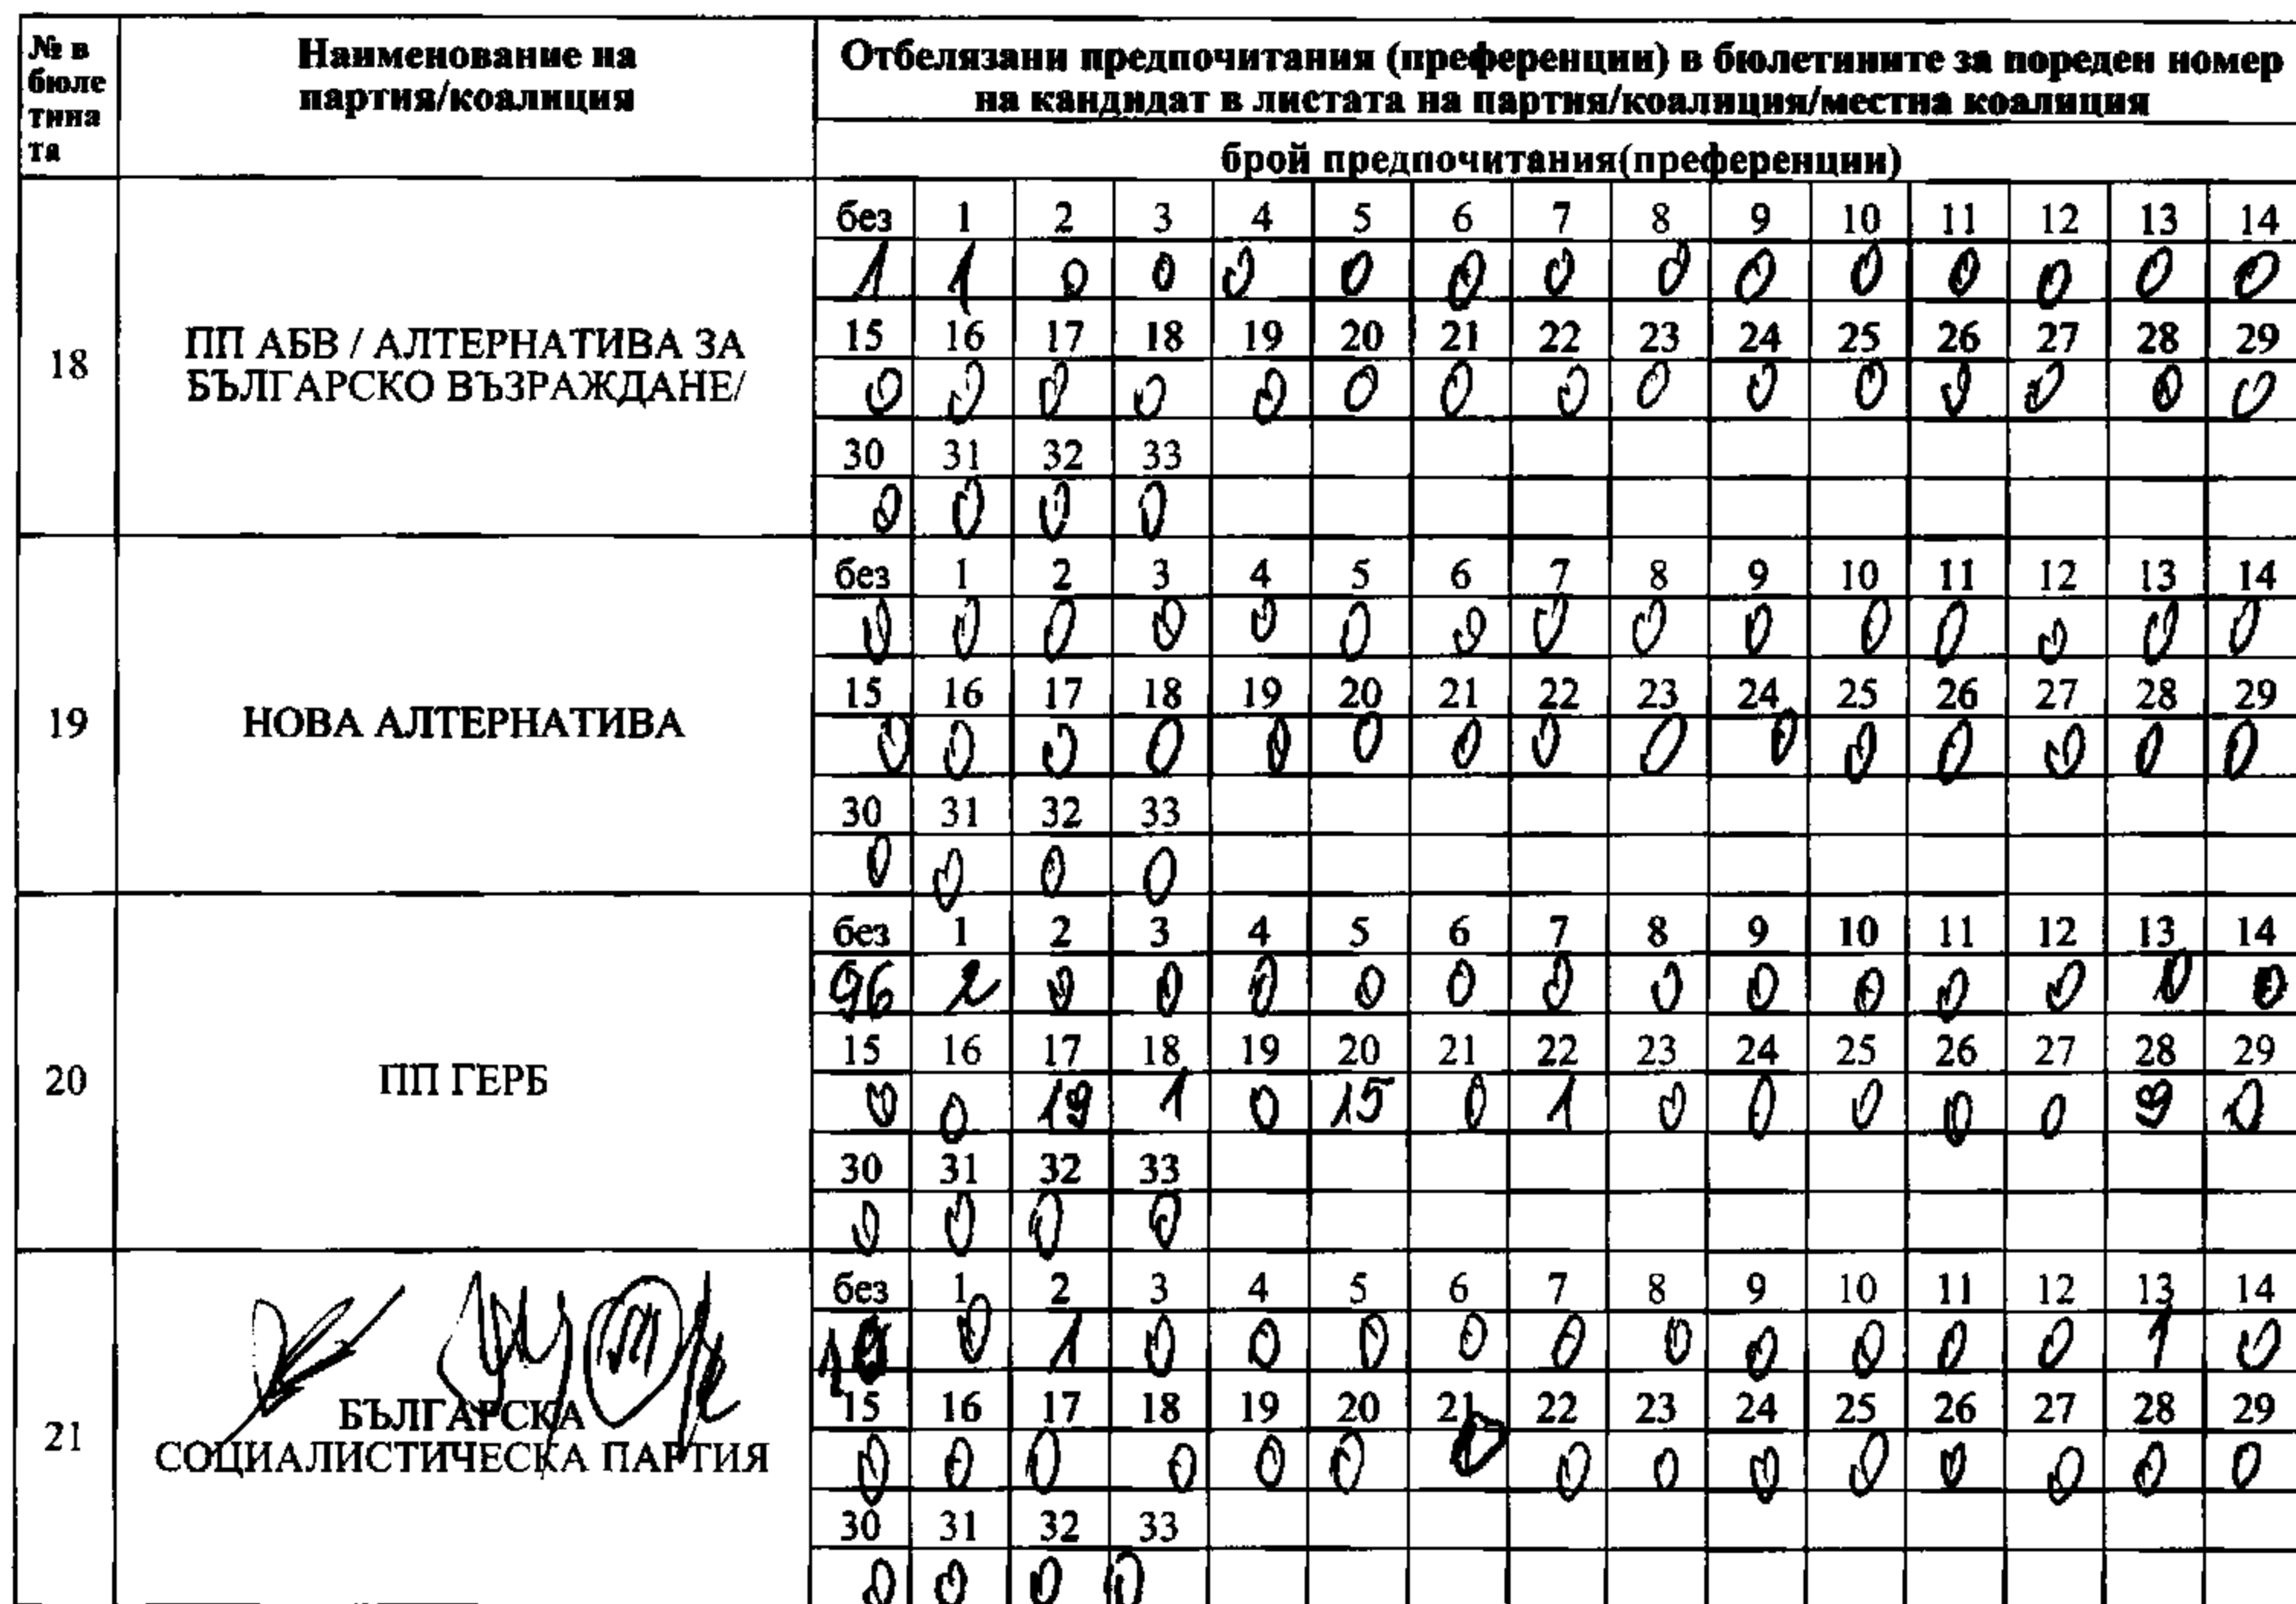 № в бюле тина та
Наименование на партия/коалиция
Отбелязани предпочитания (преференции) в бюлетините за пореден номер на кандидат в листата на партия/коалиция/местна коалиция
брой предпочитания(преференции)
18
ПП АБВ / АЛТЕРНАТИВА ЗА БЪЛГАРСКО ВЪЗРАЖДАНЕ/
без 1 2 3 4 5 6 7 8 9 10 11 12 13 14
1 1 0 0 0 0 0 0 0 0 0 0 0 0 0
15 16 17 18 19 20 21 22 23 24 25 26 27 28 29
0 0 0 0 0 0 0 0 0 0 0 0 0 0 0
30 31 32 33
0 0 0 0
19
НОВА АЛТЕРНАТИВА
без 1 2 3 4 5 6 7 8 9 10 11 12 13 14
0 0 0 0 0 0 0 0 0 0 0 0 0 0 0
15 16 17 18 19 20 21 22 23 24 25 26 27 28 29
0 0 0 0 0 0 0 0 0 0 0 0 0 0 0
30 31 32 33
0 0 0 0
20
ПП ГЕРБ
без 1 2 3 4 5 6 7 8 9 10 11 12 13 14
96 2 0 0 0 0 0 0 0 0 0 0 0 0
15 16 17 18 19 20 21 22 23 24 25 26 27 28 29
0 0 19 1 0 15 0 1 0 0 0 0 0 9 0
30 31 32 33
0 0 0 0
21
БЪЛГАРСКА СОЦИАЛИСТИЧЕСКА ПАРТИЯ
без 1 2 3 4 5 6 7 8 9 10 11 12 13 14
0 1 0 0 0 0 0 0 0 0 0 0 1 0
15 16 17 18 19 20 21 22 23 24 25 26 27 28 29
0 0 0 0 0 0 0 0 0 0 0 0 0 0 0
30 31 32 33
0 0 0 0